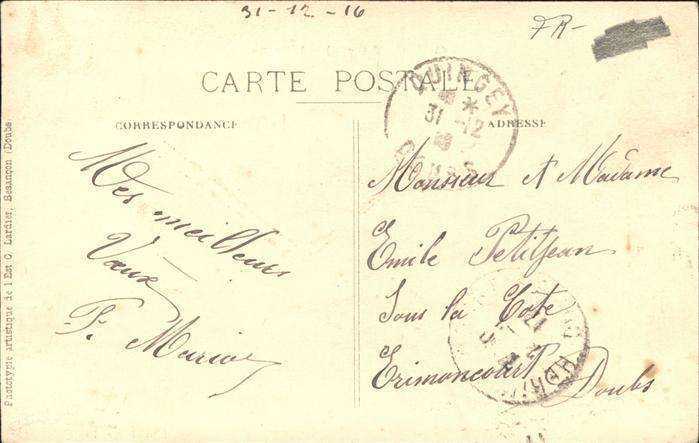 31-12-16
FR-
CARTE POSTALE
QUINGEY
31 -12
DOUBS
CORRESPONDANCE
ADRESSE
Mes meilleurs
Vœux
F.
Monsieur et Madame
Emile Petitjean
Sous la Cote
Erimoncourt
Doubs
Phototypie artistique de l'Est C. Lardier, Besançon (Doubs